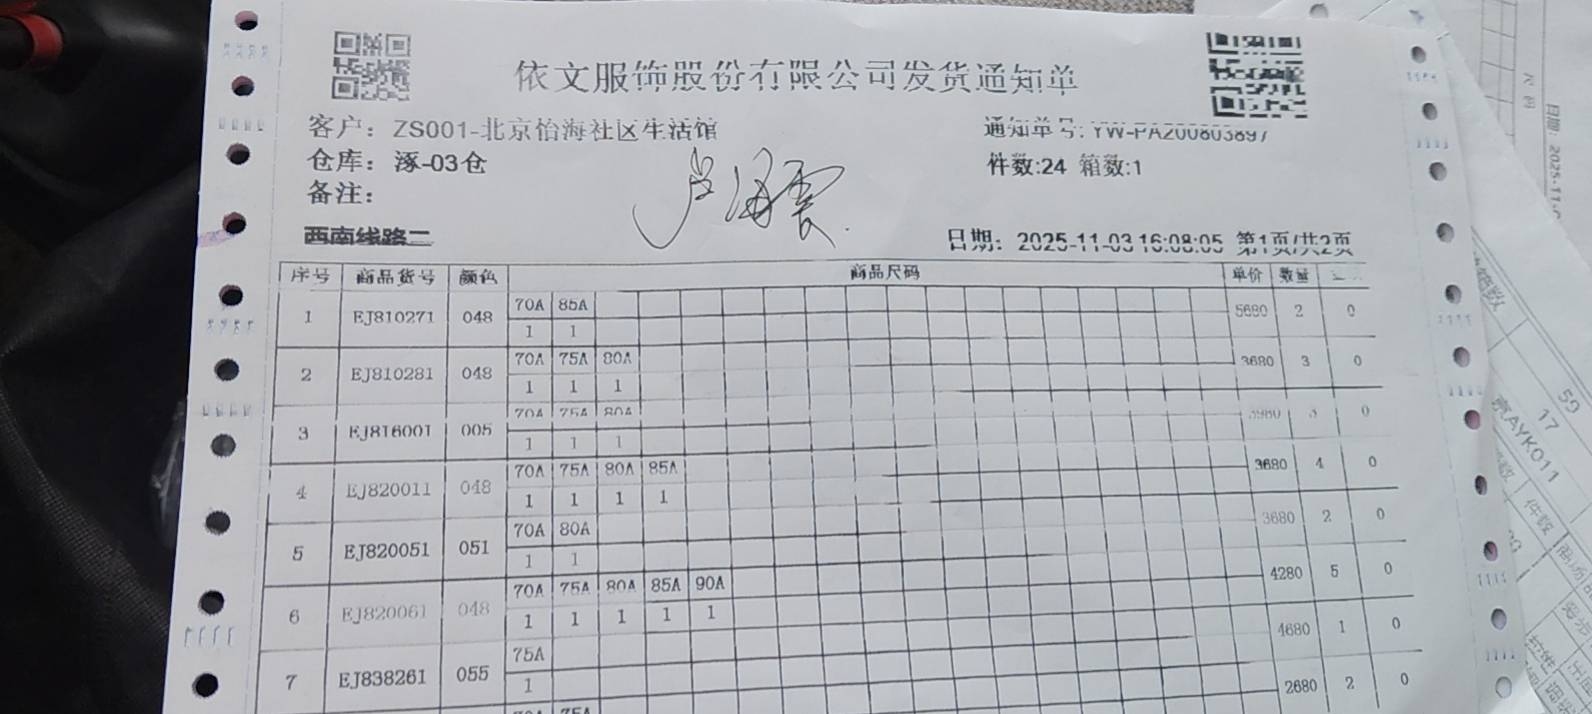 依文服饰股份有限公司发货通知单
客户：ZS001-北京怡海社区生活馆 通知单号: YW-PA200803897
仓库：涿-03仓 件数:24 箱数:1
备注：
西南线路二 日期：2025-11-03 16:08:05 第1页/共2页
序号 商品货号 颜色 商品尺码 单价 数量
1 EJ810271 048 70A 85A 5680 2 0
1 1
2 EJ810281 048 70A 75A 80A 3680 3 0
1 1 1
3 EJ816001 005 70A 75A 80A 3 0
1 1 1
4 EJ820011 048 70A 75A 80A 85A 3680 4 0
1 1 1 1
5 EJ820051 051 70A 80A 3680 2 0
1 1
6 EJ820061 048 70A 75A 80A 85A 90A 4280 5 0
1 1 1 1 1
7 EJ838261 055 75A 4680 1 0
1
70A 75A 2680 2 0
日期: 2025-11-0
箱数
59
17
京AYK011
件数